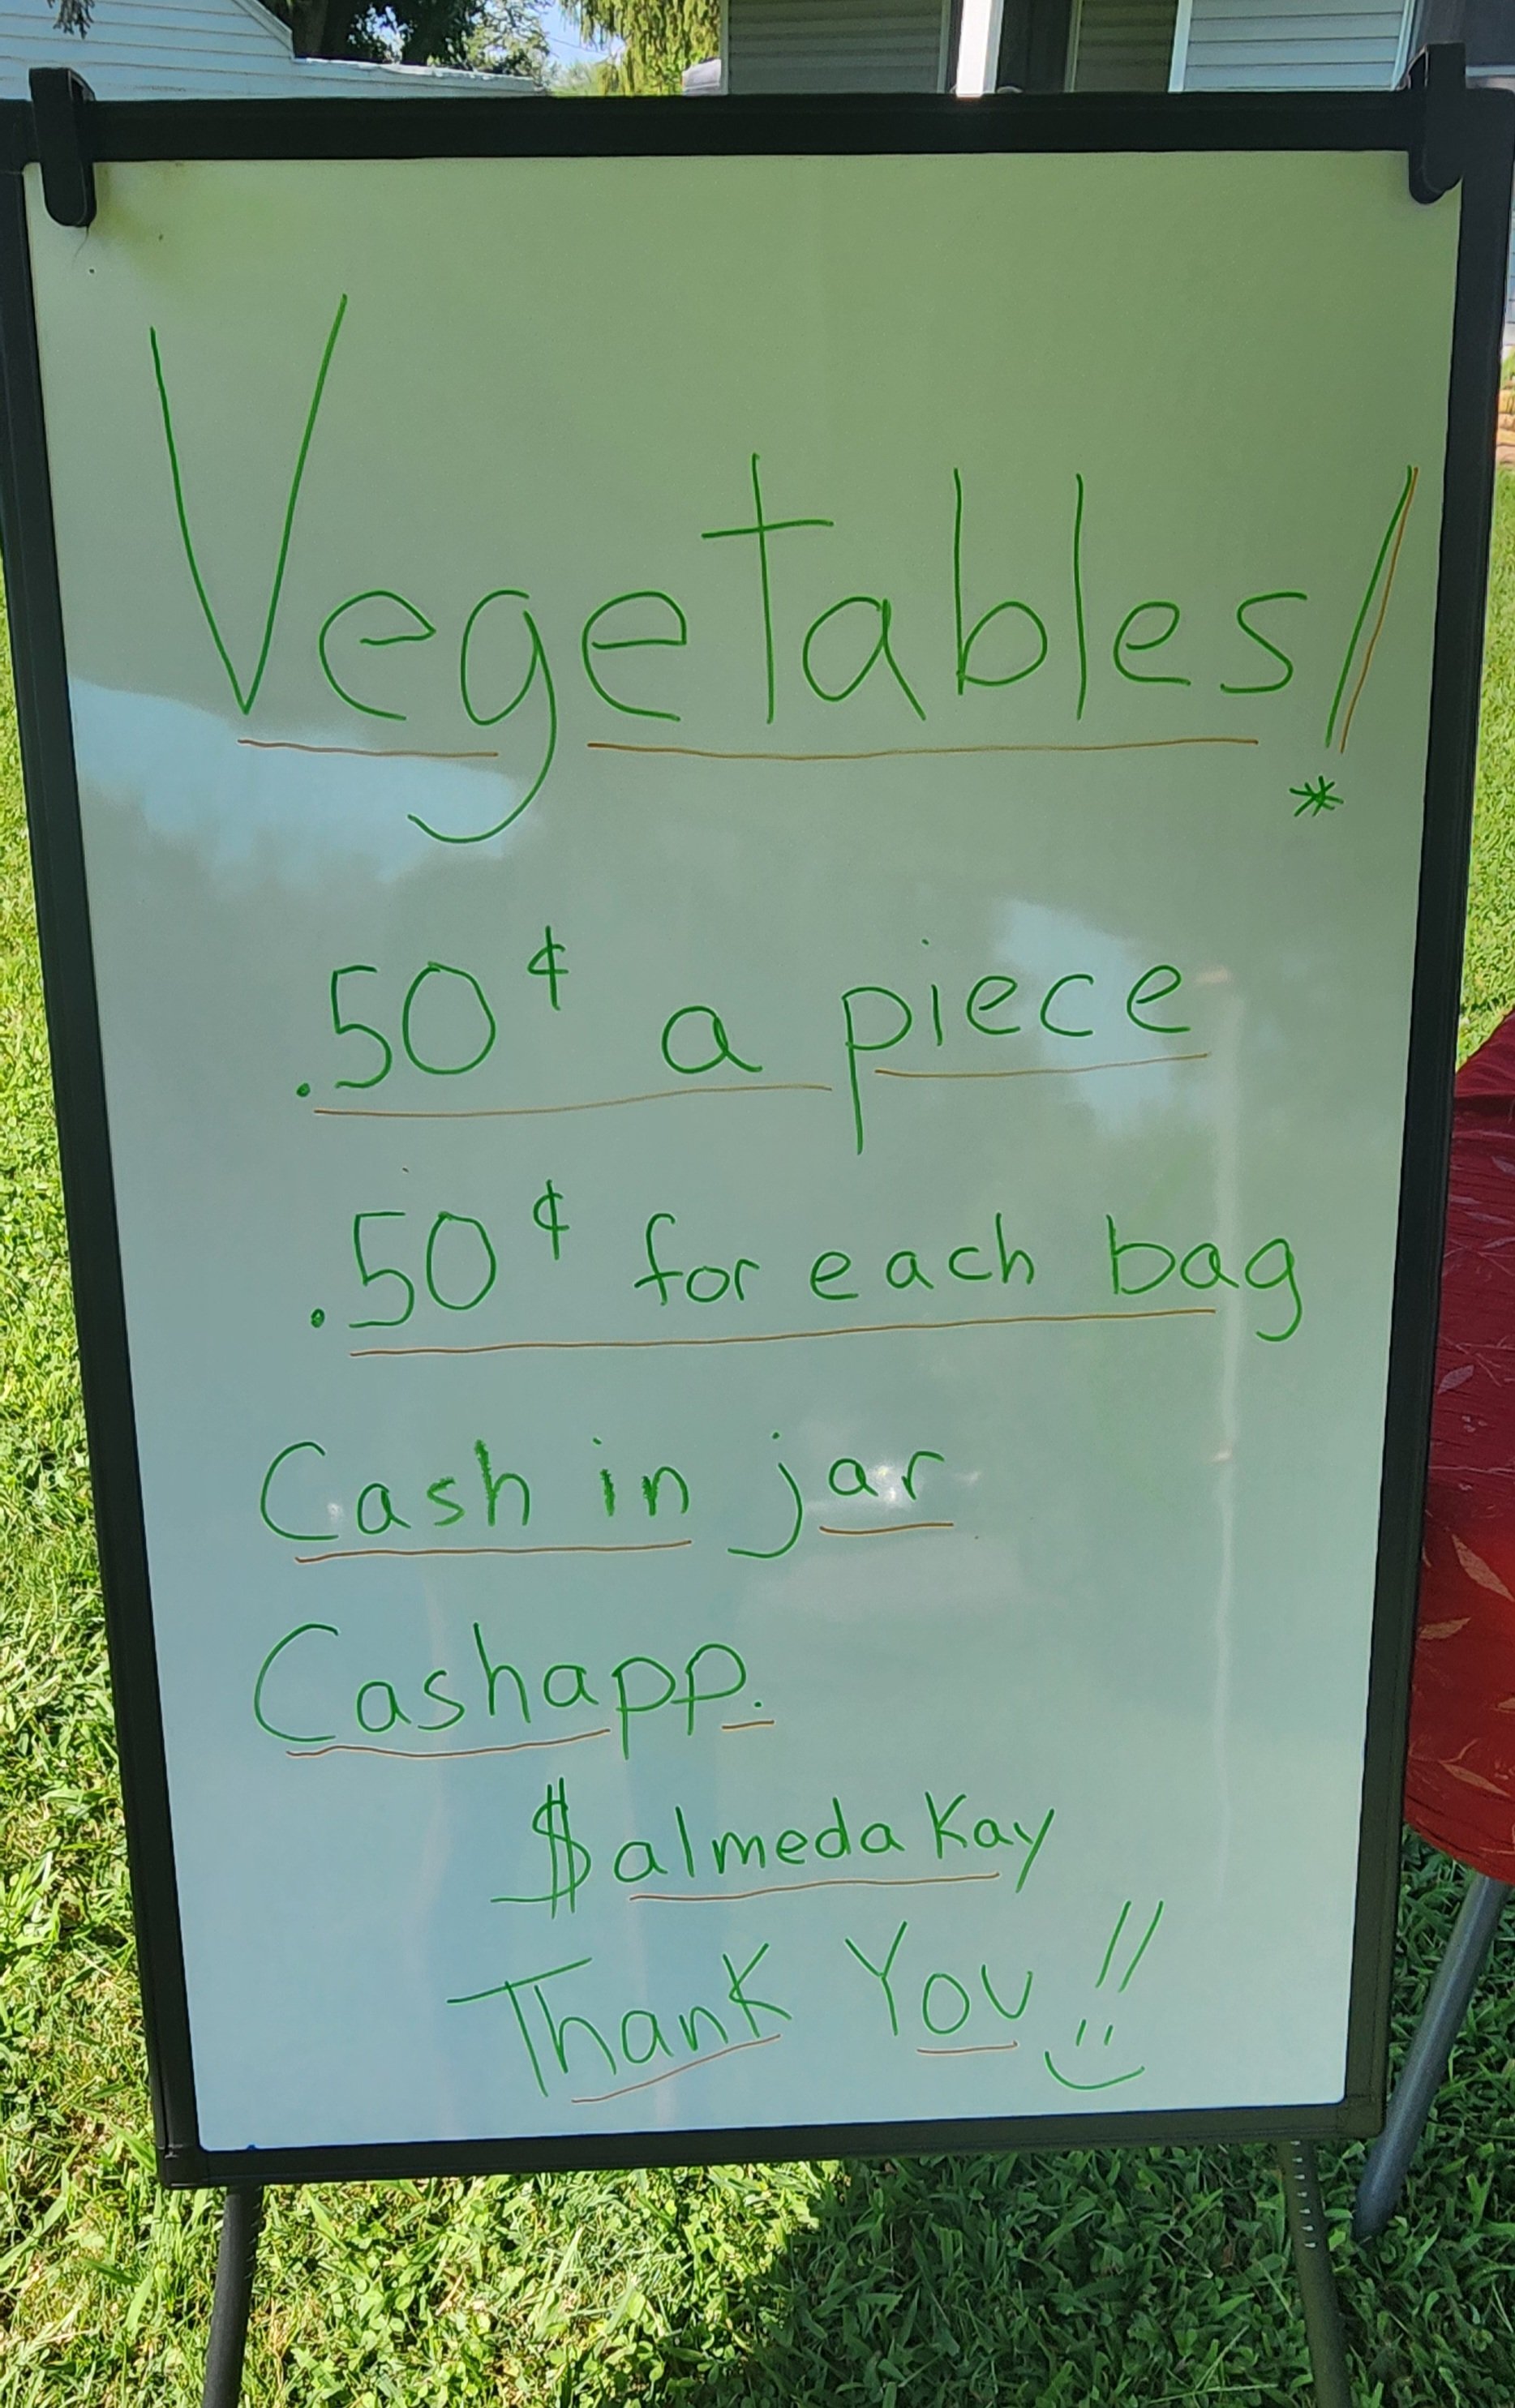 Vegetables!
.50¢ a piece
.50¢ for each bag
Cash in jar
Cashapp.
$almeda Kay
Thank You !!